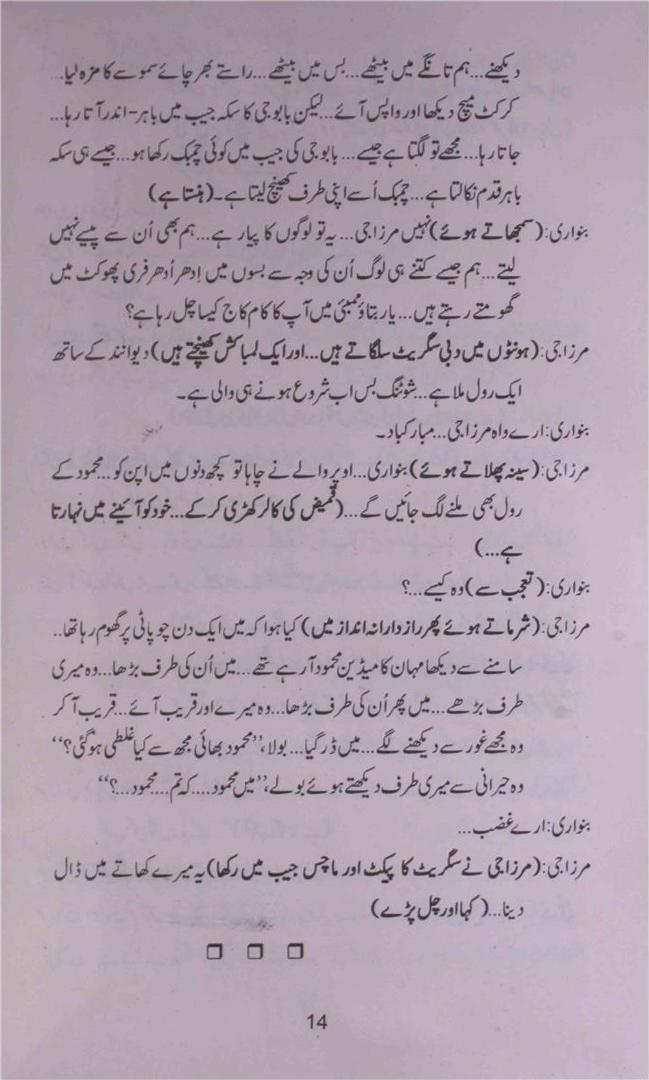 دیکھنے...ہم تانگے میں بیٹھے...بس میں بیٹھے...راستے بھر چائے سموسے کا مزہ لیا...
کرکٹ میچ دیکھا اور واپس آئے...لیکن بابوجی کا سکہ جیب میں باہر-اندر آتا رہا...
جاتا رہا...مجھے تو لگتا ہے جیسے...بابوجی کی جیب میں کوئی چمبک رکھا ہو...جیسے ہی سکہ
باہر قدم نکالتا ہے...چمبک اُسے اپنی طرف کھینچ لیتا ہے۔(ہنستا ہے)
بنواری:(سمجھاتے ہوئے)نہیں مرزا جی...یہ تو لوگوں کا پیار ہے...ہم بھی اُن سے پیسے نہیں
لیتے...ہم جیسے کتنے ہی لوگ اُن کی وجہ سے بسوں میں اِدھر اُدھر فری پھوکٹ میں
گھومتے رہتے ہیں...یار بتاؤ ممبئی میں آپ کا کام کاج کیسا چل رہا ہے؟
مرزا جی:(ہونٹوں میں دبی سگریٹ سلگاتے ہیں...اور ایک لمبا کش کھینچتے ہیں)دیوانند کے ساتھ
ایک رول ملا ہے...شوٹنگ بس اب شروع ہونے ہی والی ہے۔
بنواری:ارے واہ مرزا جی...مبارکباد۔
مرزا جی:(سینہ پھلاتے ہوئے)بنواری...اوپر والے نے چاہا تو کچھ دنوں میں اپن کو...محمود کے
رول بھی ملنے لگ جائیں گے...(قمیض کی کالر کھڑی کر کے...خود کو آئینے میں نہارتا
ہے...)
بنواری:(تعجب سے)وہ کیسے...؟
مرزا جی:(شرماتے ہوئے پھر رازدارانہ انداز میں)کیا ہوا کہ میں ایک دن چوپاٹی پر گھوم رہا تھا..
سامنے سے دیکھا مہان کامیڈین محمود آ رہے تھے...میں اُن کی طرف بڑھا...وہ میری
طرف بڑھے...میں پھر اُن کی طرف بڑھا...وہ میرے اور قریب آئے...قریب آ کر
وہ مجھے غور سے دیکھنے لگے...میں ڈر گیا...بولا،”محمود بھائی مجھ سے کیا غلطی ہو گئی؟“
وہ حیرانی سے میری طرف دیکھتے ہوئے بولے،”میں محمود....کہ تم...محمود...؟“
بنواری:ارے غضب...
مرزا جی:(مرزا جی نے سگریٹ کا پیکٹ اور ماچس جیب میں رکھا)یہ میرے کھاتے میں ڈال
دینا...(کہا اور چل پڑے)
14